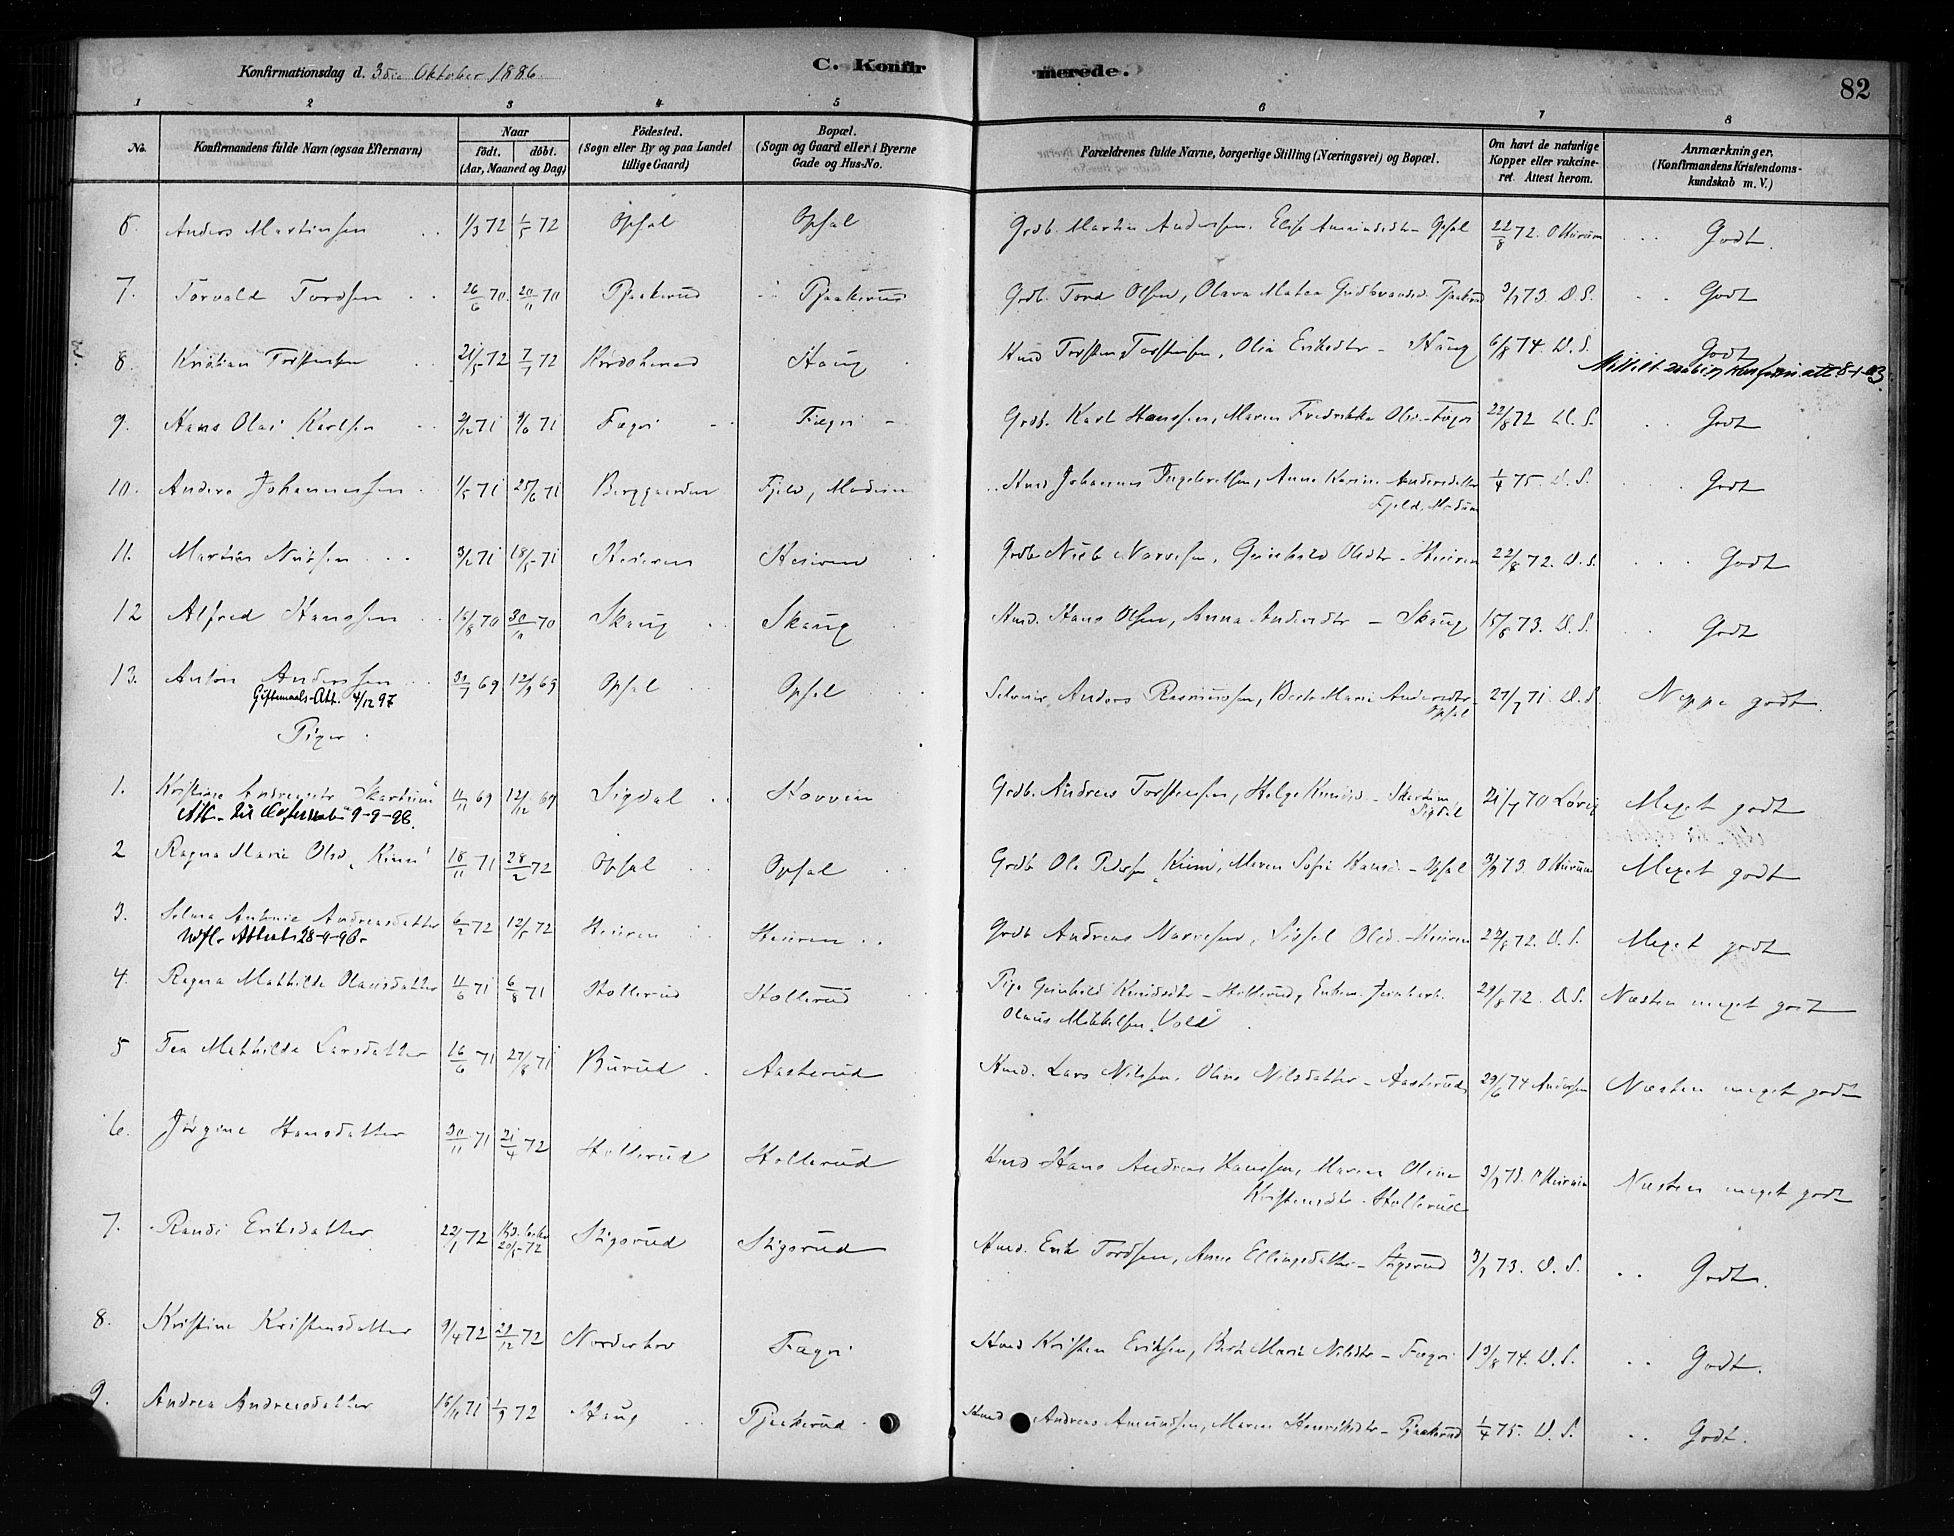 Konfirmationsdag d. 3die Oktober 1886. C. Konfirmerede. 82
1 2 3 4 5 6 7 8
No. Konfirmandens fulde Navn (ogsaa Efternavn) Naar födt. döbt. (Aar, Maaned og Dag) Födested. (Sogn eller By og paa Landet tillige Gaard) Bopæl. (Sogn og Gaard eller i Byerne Gade og Hus-No. Forældrenes fulde Navne, borgerlige Stilling (Næringsvei) og Bopæl. Om havt de naturlige Kopper eller vakcineret. Attest herom. Anmærkninger. (Konfirmandens Kristendomskundskab m. V.)
6. Anders Martinsen 1/3 72 72 Opsal Opsal Grdb. Martin Andersen, Opsal 22/8 72. Godt.
7. Torvald Tordsen 26/6 70. 20/11 70 Tjaakerud Tjaakerud Grdb. Tord Olsen, Olava Gudbrandsd. Tjaakerud 3/9 73. D. S. Godt
8. Kristian Torstensen 21/5 72 7/7 72 Haug Hmd Torsten Torstensen, Olia Eriksdtr - Haug 6/8 74. D. S. Godt
9. Hans Olai Karlsen 71 71 Fægri Fægri Grdb. Karl Hanssen, Maren Fredrikke Fægri 22/8 72 D. S. Godt
10. Anders Johannessen 1/5 71 25/6 71 Berggaarden Fjeld, Modum Hmd Johannes Ingebretsen, Anne Karine Andersdatter Fjeld, Modum 1/4 75. D. S. Godt
11. Martin Nilssen 71 18/5 71 Heieren Heieren Grdb Niels Narvesen, Gunhild Olsdtr - Heieren 22/8 72. D. S. Godt
12 Alfred Hanssen 16/8 70 30/10 70 Skaug Skaug Hmd. Hans Olsen, Anna Andersdtr - Skaug 15/8 73. D. S. Godt
13. Anton Anderssen 69 12/9 69 Opsal Opsal Anders Rasmussen, Berte Marie Andersdtr - Opsal 27/7 71. D. S Neppe godt.
Giftemaals-Att. 4/12 97
Piger.
1. Kristine Andreasdtr Skartum 69 12/12 69 Sigdal Hovvin Grdb. Andreas Torstensen, Helge Knudsd - Skartum Sigdal 70 Meget godt
9-9-98.
2 Ragna Marie Olsd. 18/11 71 28/2 72 Opsal Opsal Grdb Ole Pedersen, Maren Sofie Hansd. - Opsal 3/9 73. Meget godt
3. Selma Antonie Andreasdatter 6/2 72 12/5 72 Heieren Heieren Grdb Andreas Narvesen, Sissel Olsd. - Heieren 22/8 72. D. S. Meget godt
Attest 28-4-96
4. Ragna Mathilde Olausdatter 11/6 71 6/8 71 Hollerud Hollerud Pige Gunhild Knudsdtr - Hollerud, Enkem. Olaus Mikkelsen Vold 29/8 72. D. S. Næsten meget godt
5 Tea Mathilde Larsdatter 16/6 71 27/8 71 Burud Aasterud Hmd. Lars Nilssen, Oline Nilsdatter - Aasterud 29/6 74 Andersen Næsten meget godt
6. Jørgine Hansdatter 30/11 71 21/4 72 Hollerud Hollerud Hmd Hans Andreas Hanssen, Maren Oline Kristensdtr - Hollerud 3/9 73. Næsten meget godt
7. Randi Eriksdatter 22/1 72 20/5 72 Stigsrud Stigsrud Hmd. Erik Tordsen, Anne Ellingsdatter - Stigsrud 3/9 73. D. S. Godt.
8. Kristine Kristensdatter 9/4 72 29/12 72 Norderhov Fægri Hmd Kristen Eriksen, Berte Marie Nilsdtr - Fægri 19/8 74. D. S. Godt.
9. Andrea Andreasdatter 16/11 71 72 Haug Tjaakerud Hmd Andreas Amundsen, Maren Henriksdtr - Tjaakerud 1/4 75. D. S. Godt.